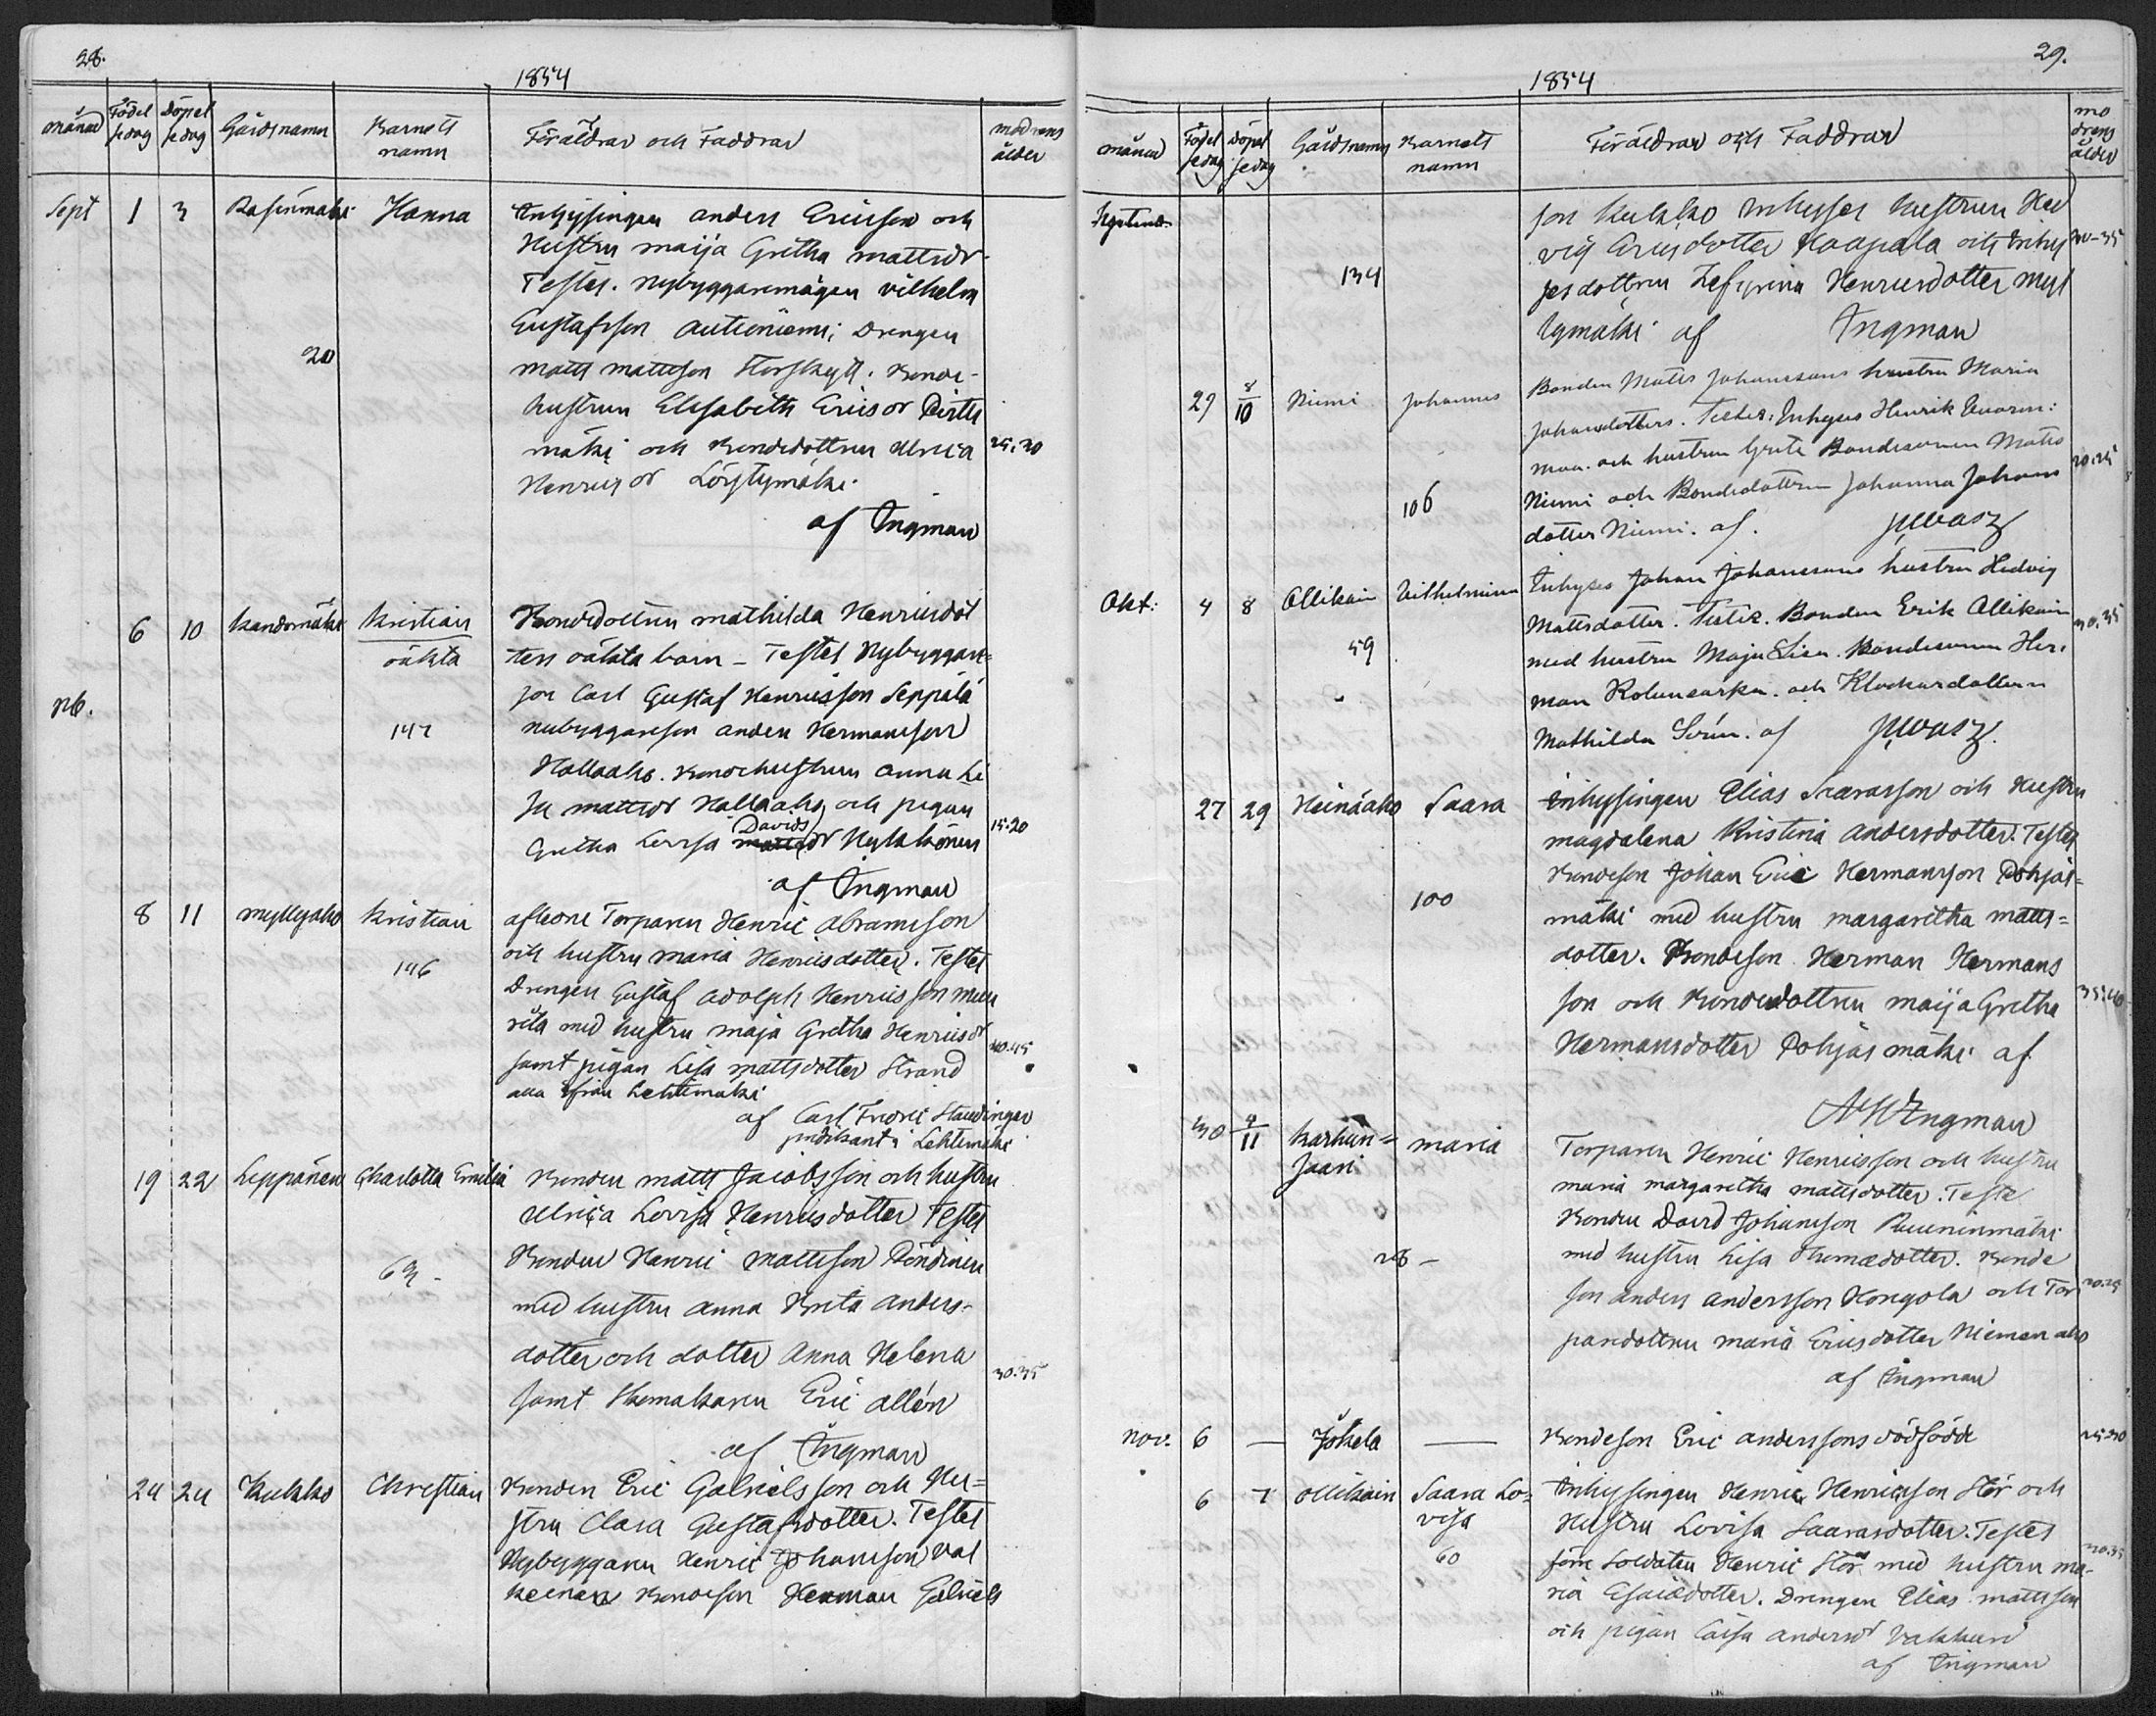 28.
1854
månad Födelsedag Döpelsedag Gårdsnamn Barnets namn Föräldrar och Faddrar modrens ålder
Sept 1 3 Hanna Inhysingen anders Ericsson och
Hustru maija Gretha mattsdr
Testes. Nybyggaremågen vilhelm
Gustafsson autioniemi; Drengen
20
matts mattsson Storskytt. Bonde-
hustrun Elisabeth Ericsdr Pirtti
mäki och Bondedottren Ulrica 25.30
Henricsdr Löytymäki.
af Ingman
6 10 Kandomäki Kristian Bondedottren mathilda Henricsdot
oäkta ters oäkta barn – Testes Nybyggare=
son Carl Gustaf Henricsson Seppälä
nb.
147 nybyggareson anders Hermansson
Hallaaho. Bondehustrun anna Li
sa mattsdr Hallaaho och pigan
Davids 15-20
Gretha Lovisa mattsdr Nykkönen
af Ingman
8 11 myllyaho Kristian afledne Torparen Henric Abramsson
och hustru maria Henricsdotter. Testes
146
Drengen Gustaf Adolph Henricsson
med hustru maja Gretha Henricsdr 40.45
samt pigan Lisa mattsdotter Strand
alla ifrån Lehtimäki
af Carl Fredric Staudinger
predikant i Lehtimäki
19 22 Leppänen Charlotta Emilia Bonden matts Jacobsson och hustru
Ulrica Lovisa Henricsdotter Testes
Bonden Henric mattsson Pöndinen
med hustru anna Brita anders-
dotter och dotter Anna Helena 30.35
samt Skomakaren Eric allén
af Ingman
24 24 Kukko Christian Bonden Eric Gabrielsson och Hu=
stru Clara Gustafsdotter. Testes
Nybyggaren Henric Johansson Val
keinen Bondeson Herman Gabriels
29.
1854
månad Födelsedag Döpelsedag Gårdsnamn Barnets namn Föräldrar och Faddrar modrens ålder
Septemb. son Kukko Inhyses hustrun Hed
vig Ericsdotter Haapala och Inhy 30-35
134
sesdottren Zefyrina Henricsdotter myl
lymäki af Ingman
29 8/10 Niemi Johannes Bonden Matts Johanssons hustru Maria
Johansdotters. Testes: Inhyses Henrik
och hustrun Greta Bondesonen Matts 20.25
106
Niemi och Bondedottren Johanna Johans
dotter Niemi. af.
Okt: 4 8 Ollikain Vilhelmina Inhyses Johan Johanssons hustru Hedvig
Mattsdotter. Testes. Bonden Erik Ollikain 30.35
59
med hustru Maja Lisa. Bondesonen Her-
man och Klockardottern
Mathilda af
27 29 Heinäaho Saara Inhysingen Elias Saarasson och Hustru
magdalena Kristina Andersdotter. Testes
Bondeson Johan Eric Hermansson Pohjas=
100
mäki med hustru margaretha matts=
dotter. Bondeson Herman Hermans
son och Bondedottren maija Gretha 35.40
Hermansdotter Pohjasmäki af
A W Ingman
30 4/11 Karhun= maria Torparen Henric Henricsson och hustru
saari maria margaretha mattsdotter. Teste
Bonden David Johansson Ruuninmäki
28 – med hustru Lisa Thomædotter. Bonde
son anders andersson Hongola och Tor 20.25
paredottren maria Ericsdotter Niemen aho
af Ingman
Nov. 6 — Jokela — Bondeson Eric anderssons dödfödde 25.30
6 7 Ollikain Saara Lo- Inhysingen Henric Henricsson Stör och
visa Hustru Lovisa Saarasdotter. Testes
60 före Soldaten Henric Stör med hustru ma- 30.35
ria Esaiædotter. Drengen Elias mattsson
och pigan Caisa andersdr Valkkari
af Ingman